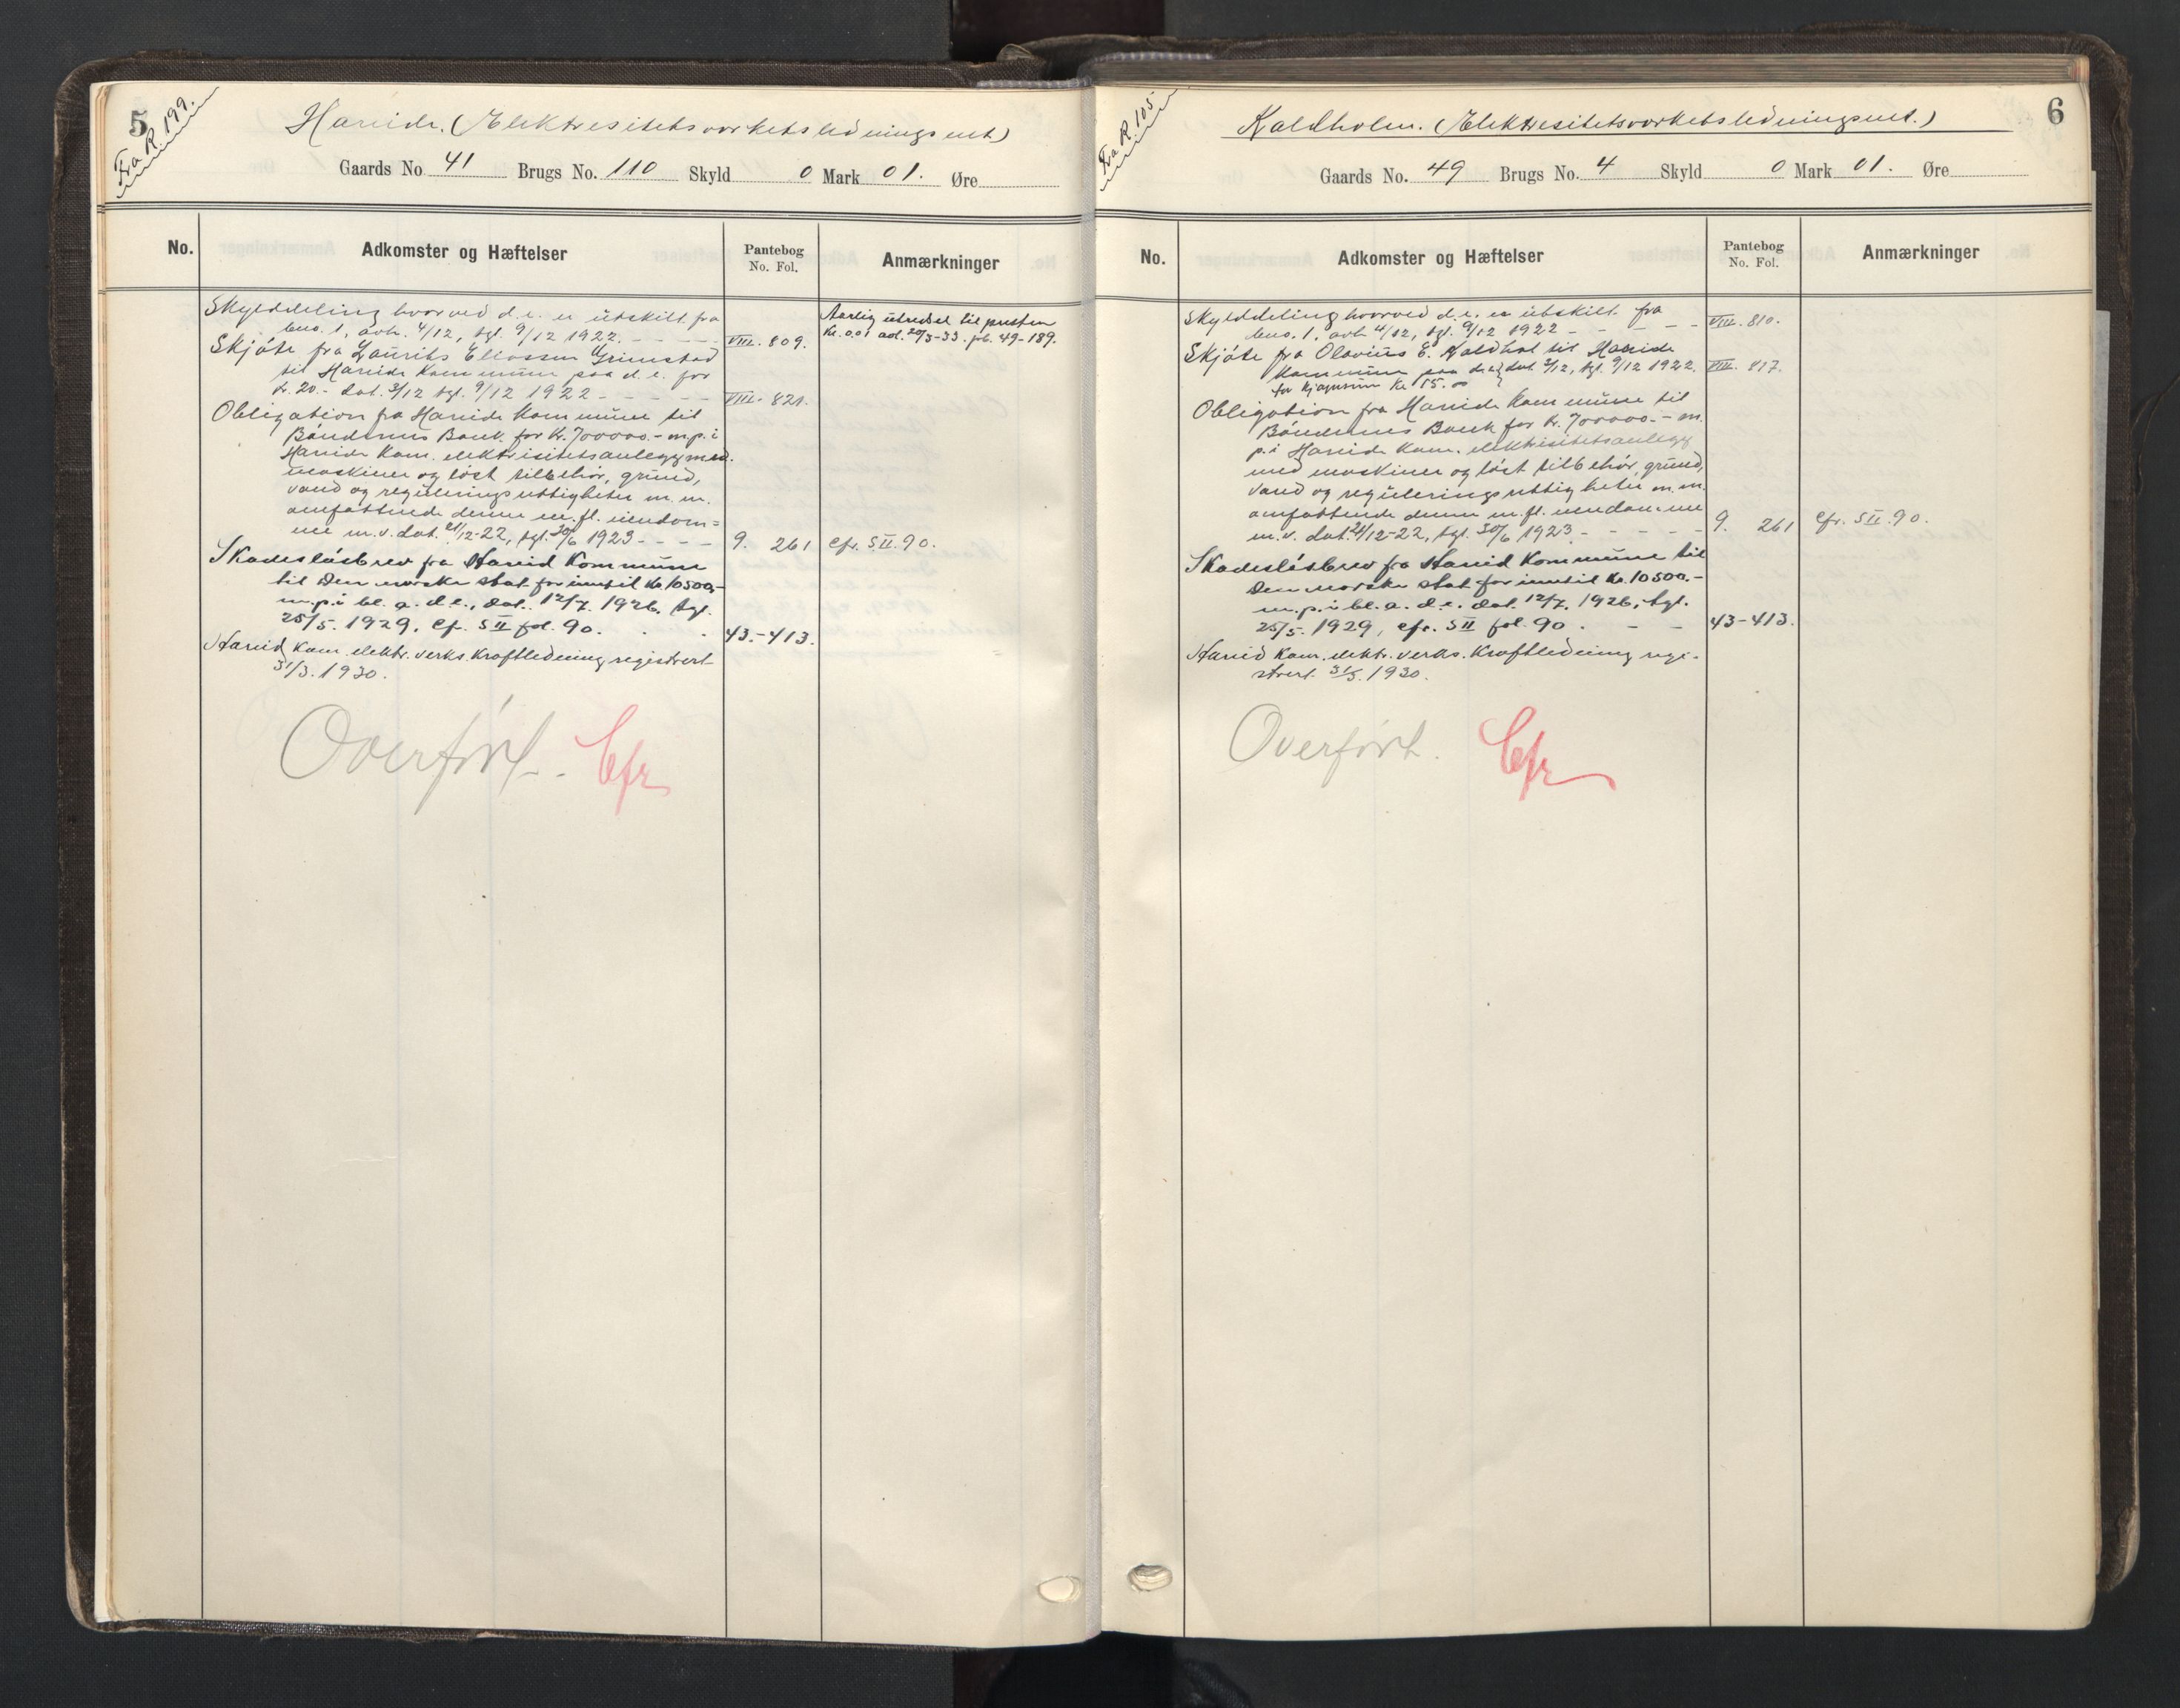 5
Fra R. 199.
Hareide. (Elektresitetsverkets ledningsnet)
Gaards No 41 Brugs No. 110 Skyld 0 Mark 01. Øre
No. Adkomster og Hæftelser Pantebog No. Fol. Anmærkninger
Skylddeling hvorved d.e. er utskilt fra
bno. 1, avh. 4/12, tgl. 9/12 1922. - - - - VIII. 809.
Aarlig utredsel til presten
Kr. 0.01 avl. 20/3-33. pb. 49-189.
Skjøte fra Laurits Eliassen Grimstad
til Hareide Kommune paa d.e. for
kr. 20.- dat. 3/12 tgl. 9/12 1922 - - - - VIII. 821.
Obligation fra Hareide kommune til
Bøndernes Bank for kr. 700000.- m.p. i
Hareide kom. elektrisitetsanlegg med
maskiner og løst tilbehør, grund,
vand og reguleringsrettigheter m.m.
omfattende denne m.fl. eiendom=
me m.v. dat. 21/12-22, tgl. 30/6 1923 - - - - 9. 261 cfr. S II. 90.
Skadesløsbrev fra Hareid Kommune
til Den norske stat for inntil kr. 10500,-
m.p. i bl. a. d.e., dat. 12/7. 1926, tgl.
25/5. 1929, cfr. S II fol. 90. . . 43.-413.
Hareid kom. elektr. verks. kraftledning registrert
31/3. 1930.
Overført. Cfr
6
Fra R. 105
Kaldholm. (Elektresitetsverkets ledningsnet.)
Gaards No. 49 Brugs No. 4 Skyld 0 Mark 01. Øre
No. Adkomster og Hæftelser Pantebog No. Fol. Anmærkninger
Skylddeling hvorved d.e. er utskilt fra
bno. 1, avh. 4/12, tgl. 9/12 1922 - - - - - VIII. 810.
Skjøte fra Olavius E. Kaldhol til Hareide
kommune paa d.e. dat. 3/12, tgl. 9/12 1922. VIII. 817.
for kjøpesum kr. 15.00
Obligation fra Hareide kommune til
Bøndernes Bank for kr. 700000.- m.
p. i Hareide kom. elektrisitetsanlegg
med maskiner og løst tilbehør, grund,
vand og reguleringsrettigheter m.m.
omfattende denne m.fl. eiendomme
m.v. dat. 21/12-22, tgl. 30/6 1923 - - - - - 9. 261 cfr. S II. 90.
Skadesløsbrev fra Hareid Kommune til
Den norske stat for inntil kr. 10500.-
m.p. i bl. a. d.e. dat. 12/7. 1926, tgl.
25/5. 1929, cfr. S II fol. 90. - - 43-413.
Hareid kom. elektr. verks. kraftledning regi-
strert 31/3. 1930.
Overført. Cfr